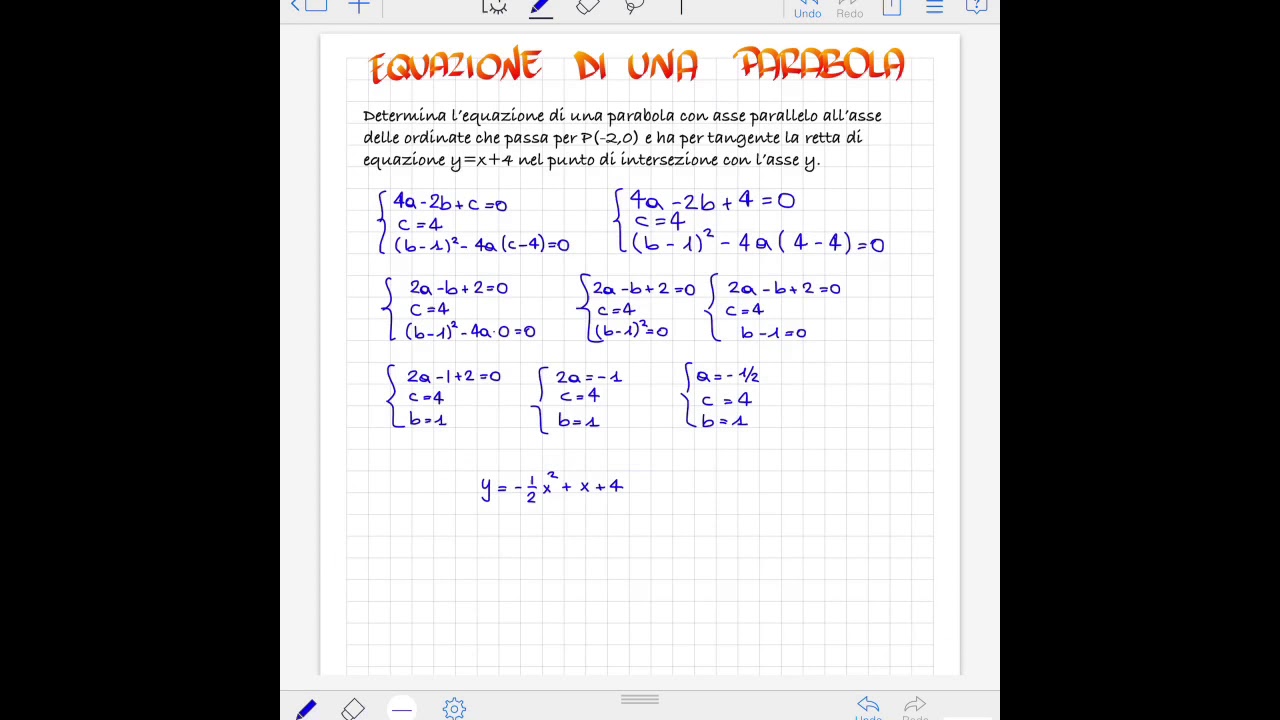 Undo Redo
EQUAZIONE DI UNA PARABOLA
Determina l'equazione di una parabola con asse parallelo all'asse
delle ordinate che passa per P(-2,0) e ha per tangente la retta di
equazione y=x+4 nel punto di intersezione con l'asse y.
4a-2b+c=0
c=4
(b-1)²-4a(c-4)=0
4a-2b+4=0
c=4
(b-1)²-4a(4-4)=0
2a-b+2=0
c=4
(b-1)²-4a·0=0
2a-b+2=0
c=4
(b-1)²=0
2a-b+2=0
c=4
b-1=0
2a-1+2=0
c=4
b=1
2a=-1
c=4
b=1
a=-1/2
c=4
b=1
y=-1/2x²+x+4
Undo Redo